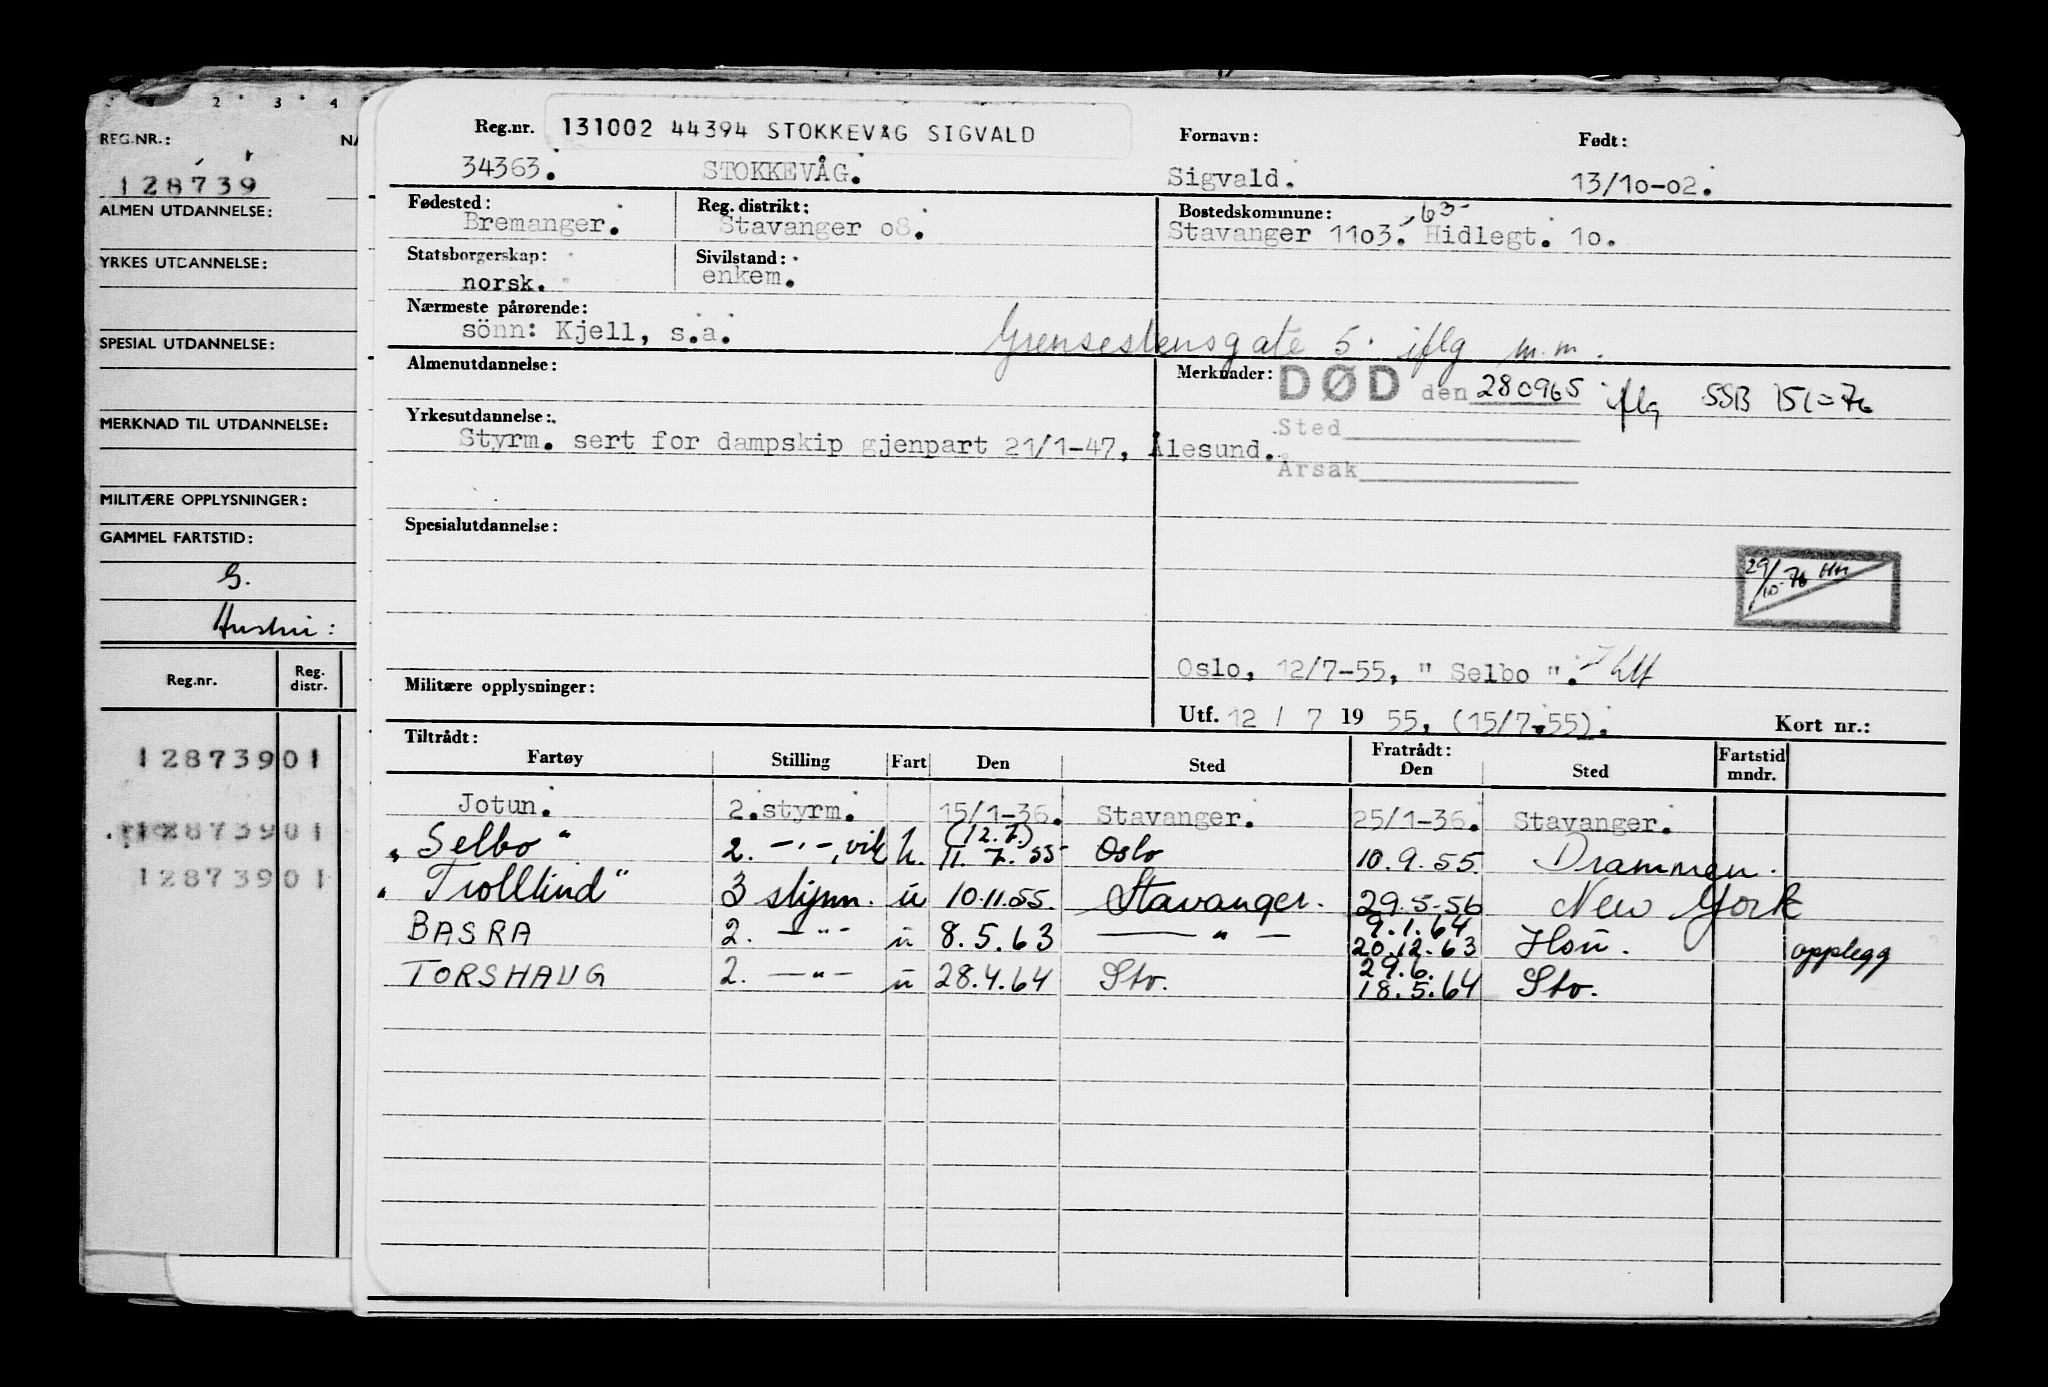 2 3 4
REG.NR.: NA
128739
ALMEN UTDANNELSE:
YRKES UTDANNELSE:
SPESIAL UTDANNELSE:
MERKNAD TIL UTDANNELSE:
MILITÆRE OPPLYSNINGER:
GAMMEL FARTSTID:
G.
Hustru:
Reg.nr. Reg. distr.
128739 01
128739 01
128739 01
Reg.nr. 131002 44394 STOKKEVÅG SIGVALD Fornavn: Født:
34363. STOKKEVÅG. Sigvald. 13/10-02.
Fødested: Reg. distrikt: Bostedskommune: 63
Bremanger. Stavanger 08. Stavanger 1103. Hidlegt. 10.
Statsborgerskap: Sivilstand:
norsk. enkem.
Nærmeste pårørende:
sönn: Kjell, s.a. Grensestensgate 5. iflg m.m.
Almenutdannelse: Merknader: DØD den 280965 iflg SSB 151=76
Yrkesutdannelse: Sted
Styrm. sert for dampskip gjenpart 21/1-47, Ålesund.
Årsak
Spesialutdannelse:
29/10-76 HM
Oslo, 12/7-55, " Selbo ".
Militære opplysninger:
Utf. 12 / 7 19 55. (15/7-55). Kort nr.:
Tiltrådt: Fratrådt:
Fartøy Stilling Fart Den Sted Den Sted Fartstid mndr.
Jotun. 2.styrm. 15/1-36. Stavanger. 25/1-36. Stavanger.
(12.7.)
„Selbo" 2. -"-, vik h. 11. 7. 55 Oslo 10.9.55. Drammen.
„Trollind" 3 styrm. u 10.11.55. Stavanger. 29.5-56 New York
9.1.64
BASRA 2. -"- u 8.5.63 -"- 20.12.63 Hsu. opplegg
29.6.
TORSHAUG 2. -"- u 28.4.64 Stv. 18.5.64 Stv.